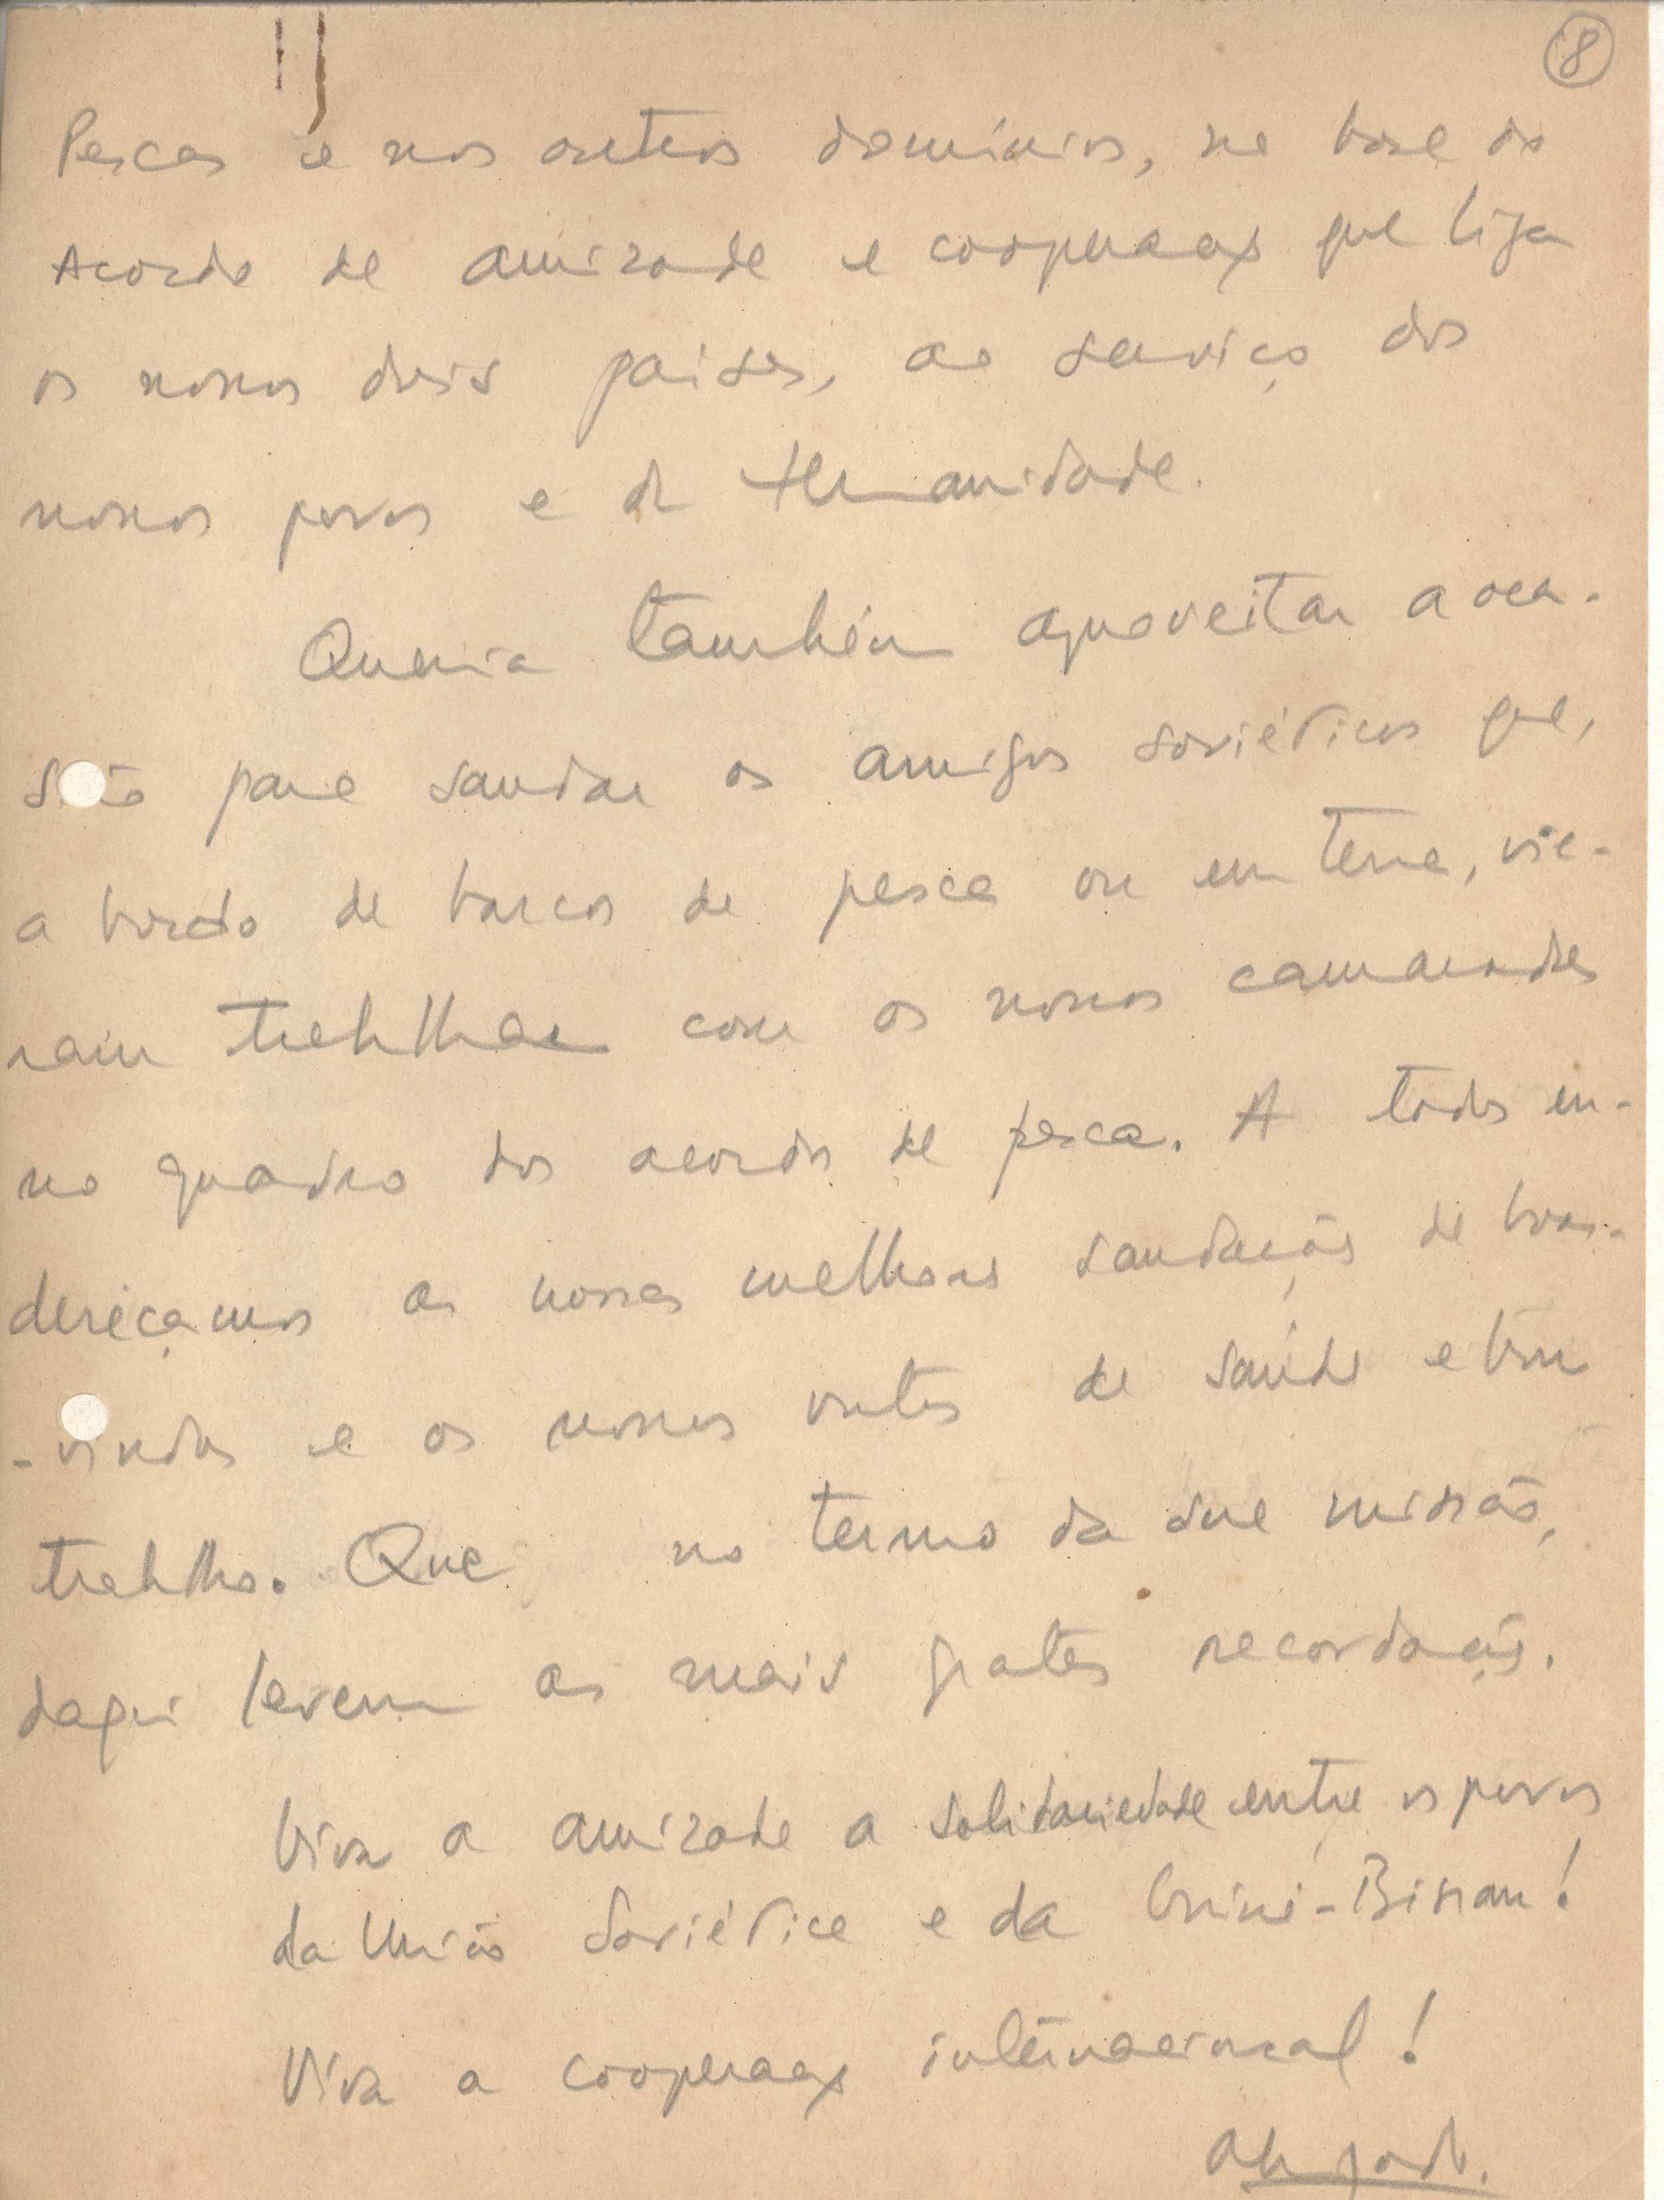 8
Pescas e nos outros domínios, na base do
Acordo de amizade e cooperação que liga
os nossos dois países, ao serviço dos
nossos povos e da Humanidade.
Queria também aproveitar a oca-
sião para saudar os amigos soviéticos que,
a bordo de barcos de pesca ou em terra, vie-
ram trabalhar com os nossos camaradas
no quadro dos acordos de pesca. A todos en-
dereçamos as nossas melhores saudações de boas-
-vindas e os nossos votos de saúde e bom
trabalho. Que no termo da sua missão,
daqui levem as mais gratas recordações.
Viva a amizade a solidariedade entre os povos
da União Soviética e da Guiné-Bissau!
Viva a cooperação internacional!
Obrigado.